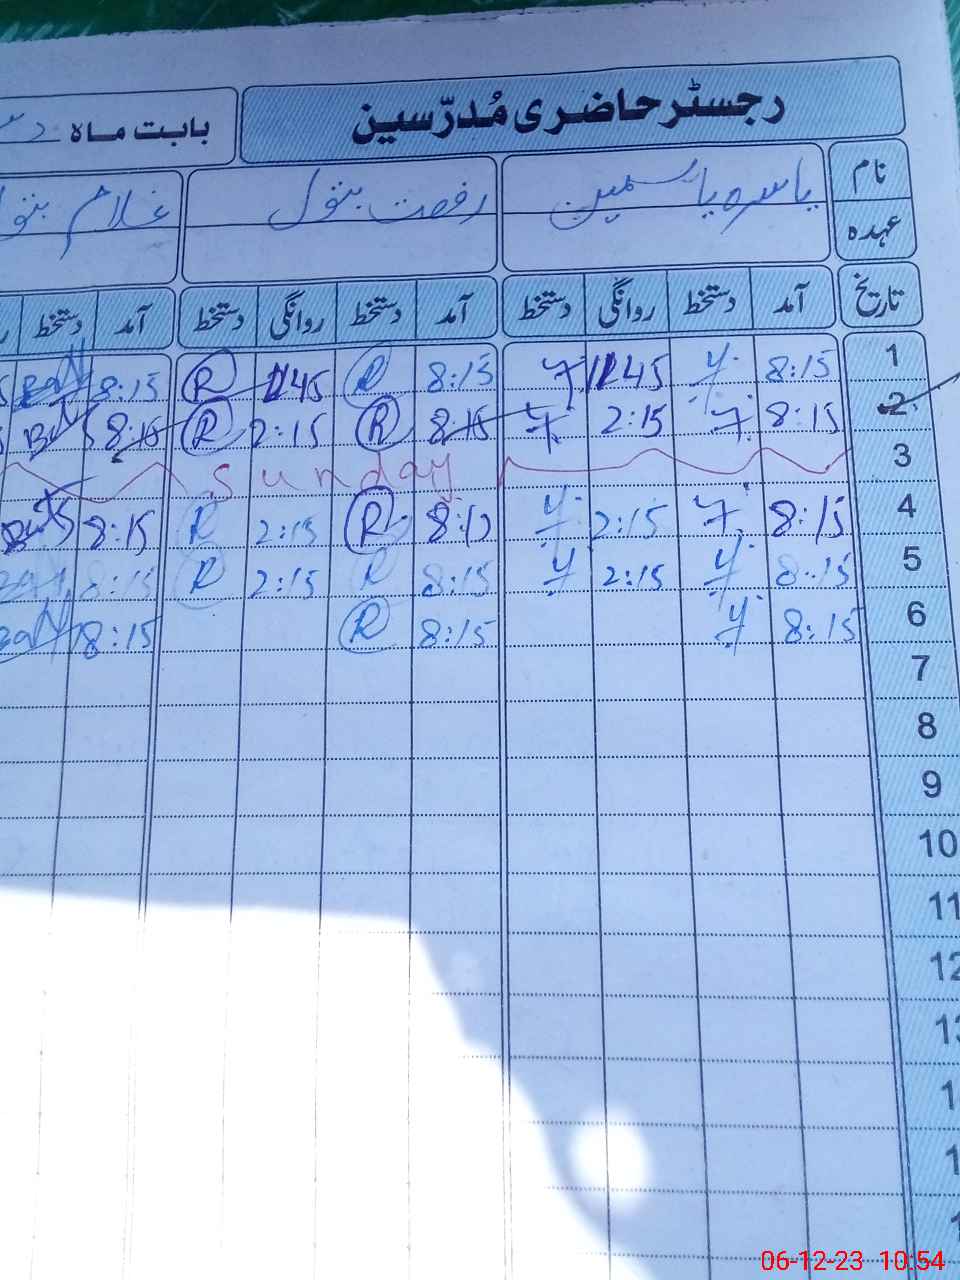 رجسٹر حاضری مُدرّسین
بابت ماہ
نام یاسرہ یاسمین رفعت بتول غلام
عہدہ
تاریخ آمد دستخط روانگی دستخط آمد دستخط روانگی دستخط آمد دستخط
1 8:15 y 1145 y 8:15 R 1145 R 8:15
2 8:15 y 2:15 y 8:15 R 2:15 R 8:15
3 Sunday
4 8:15 y 2:15 y 8:15 R 2:15 R 8:15
5 8:15 y 2:15 y 8:15 R 2:15 R 8:15
6 8:15 y 8:15 R 8:15
7
8
9
10
11
06-12-23 10:54